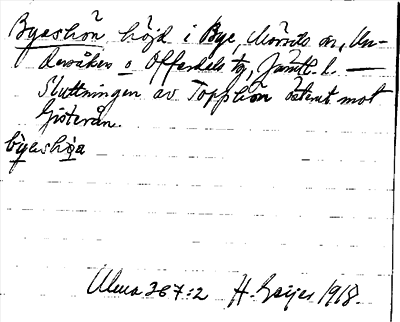 Byeshön höjd i Bye, Mörsils sn, Un-
dersåker o Offerdals tg, Jämtl. l. —
Sluttningen av Topphön österut mot
Gisterån.
byeshöa
Uluma 367:2 H. Geijer 1918.